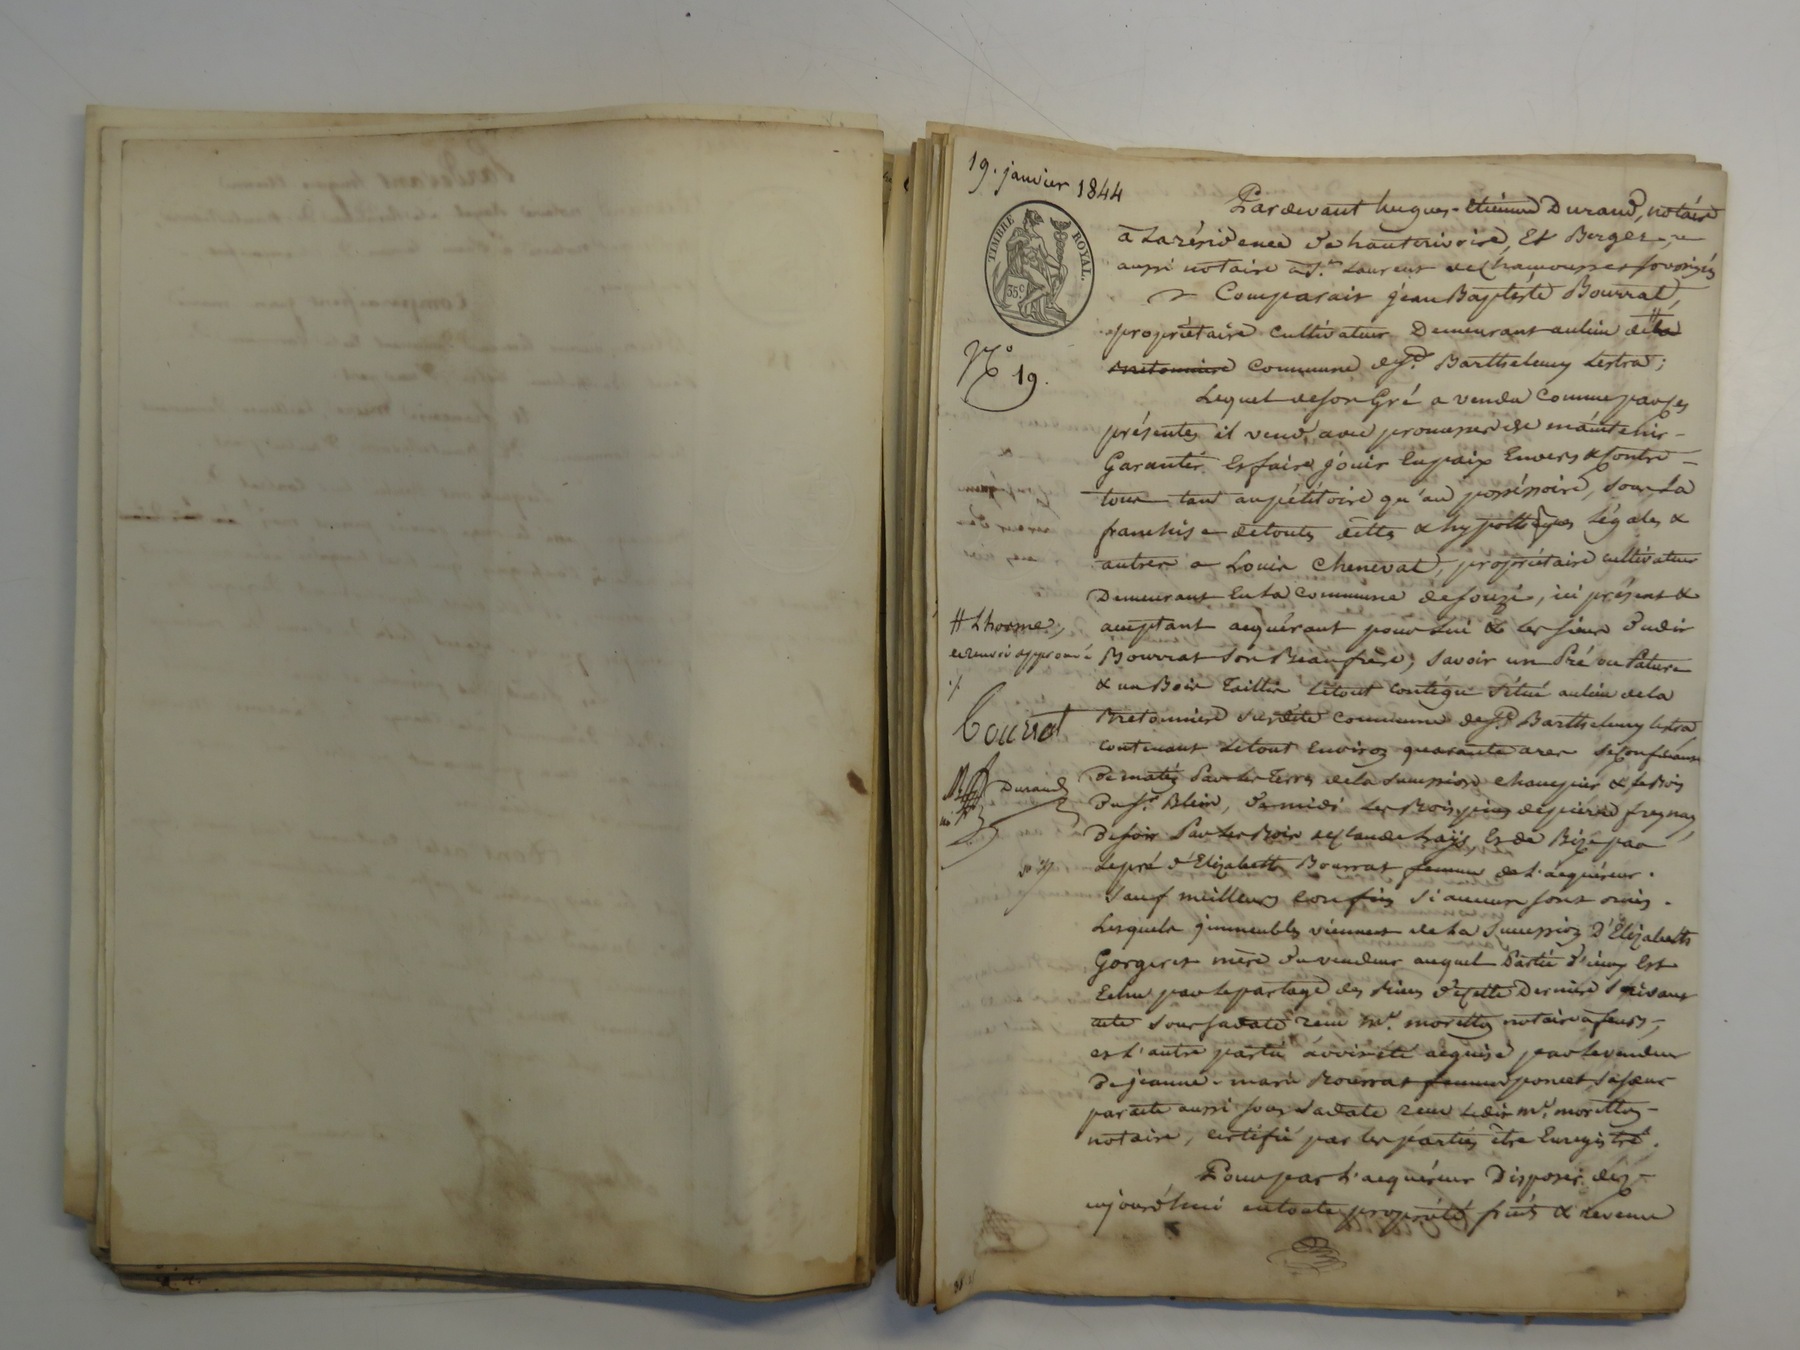 19. janvier 1844
TIMBRE ROYAL.
35c
N.o 19.
Pardevant hugues-étienne Durand, notaire
à La résidence de hauterivoire, Et Berger,
aussi notaire à St. Laurent de Chamousset soussignés
Comparait jean Baptiste Bourrat,
propriétaire cultivateur Demeurant au lieu de # la
bretonniere Commune de St. Barthelemy Lestra;
Lequel de son Gré a vendu Comme par ces
présentes il vend, avec promesse de maintenir
Garantir Et faire jouir En paix Envers & Contre
tous tant au pétitoire qu'au possessoire, sous La
franchise de toutes dettes & hypothèques Légales &
autres a Louis Cheneval, propriétaire cultivateur
Demeurant En La Commune de souzi, ici présent &
acceptant acquérant pour Lui & Les siens dudit
Bourrat son Beau frère; Savoir un Pré ou Pature
& un Bois Taillis Le tout contigu situé au lieu de La
Bretonniere susdite commune de St. Barthelemy Lestra
contenant Le tout Environ quarante ares se Confinant
De matin Par Les Terres de La succession & Le Bois
Du Sr. Blein, De midi Les Bois de pierre
De soir Par Les Bois Et de Bize par
Le pré d'Elizabeth Bourrat femme de L'acquéreur.
Sauf meilleurs Confins si aucuns sont omis.
Lesquels immeubles viennent de La Succession D'Elizabeth
Gorgeret mère du vendeur auquel Partie d'iceux Est
Echue par Le partage des Biens d'icelle Dernière Suivant
acte sous sa date reçu Me. notaire à feurs,
et L'autre partie avoir été acquise par Le vendeur
De jeanne-marie Bourrat femme poncet, sa soeur
par acte aussi sous sa date reçu Ledit Me.
notaire, certifié par les parties être Enregistré.
Pour par L'acquéreur Disposer dès
aujourd'hui en toute propriété fruits & revenu
# Lhorme;
et renvoi approuvé
Bourrat
Durand